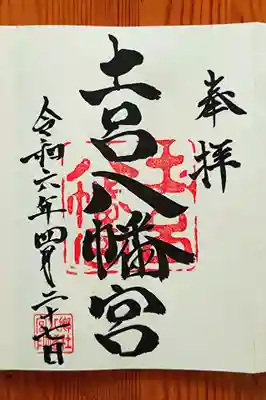 奉拝
土呂八幡宮
令和六年四月二十七日